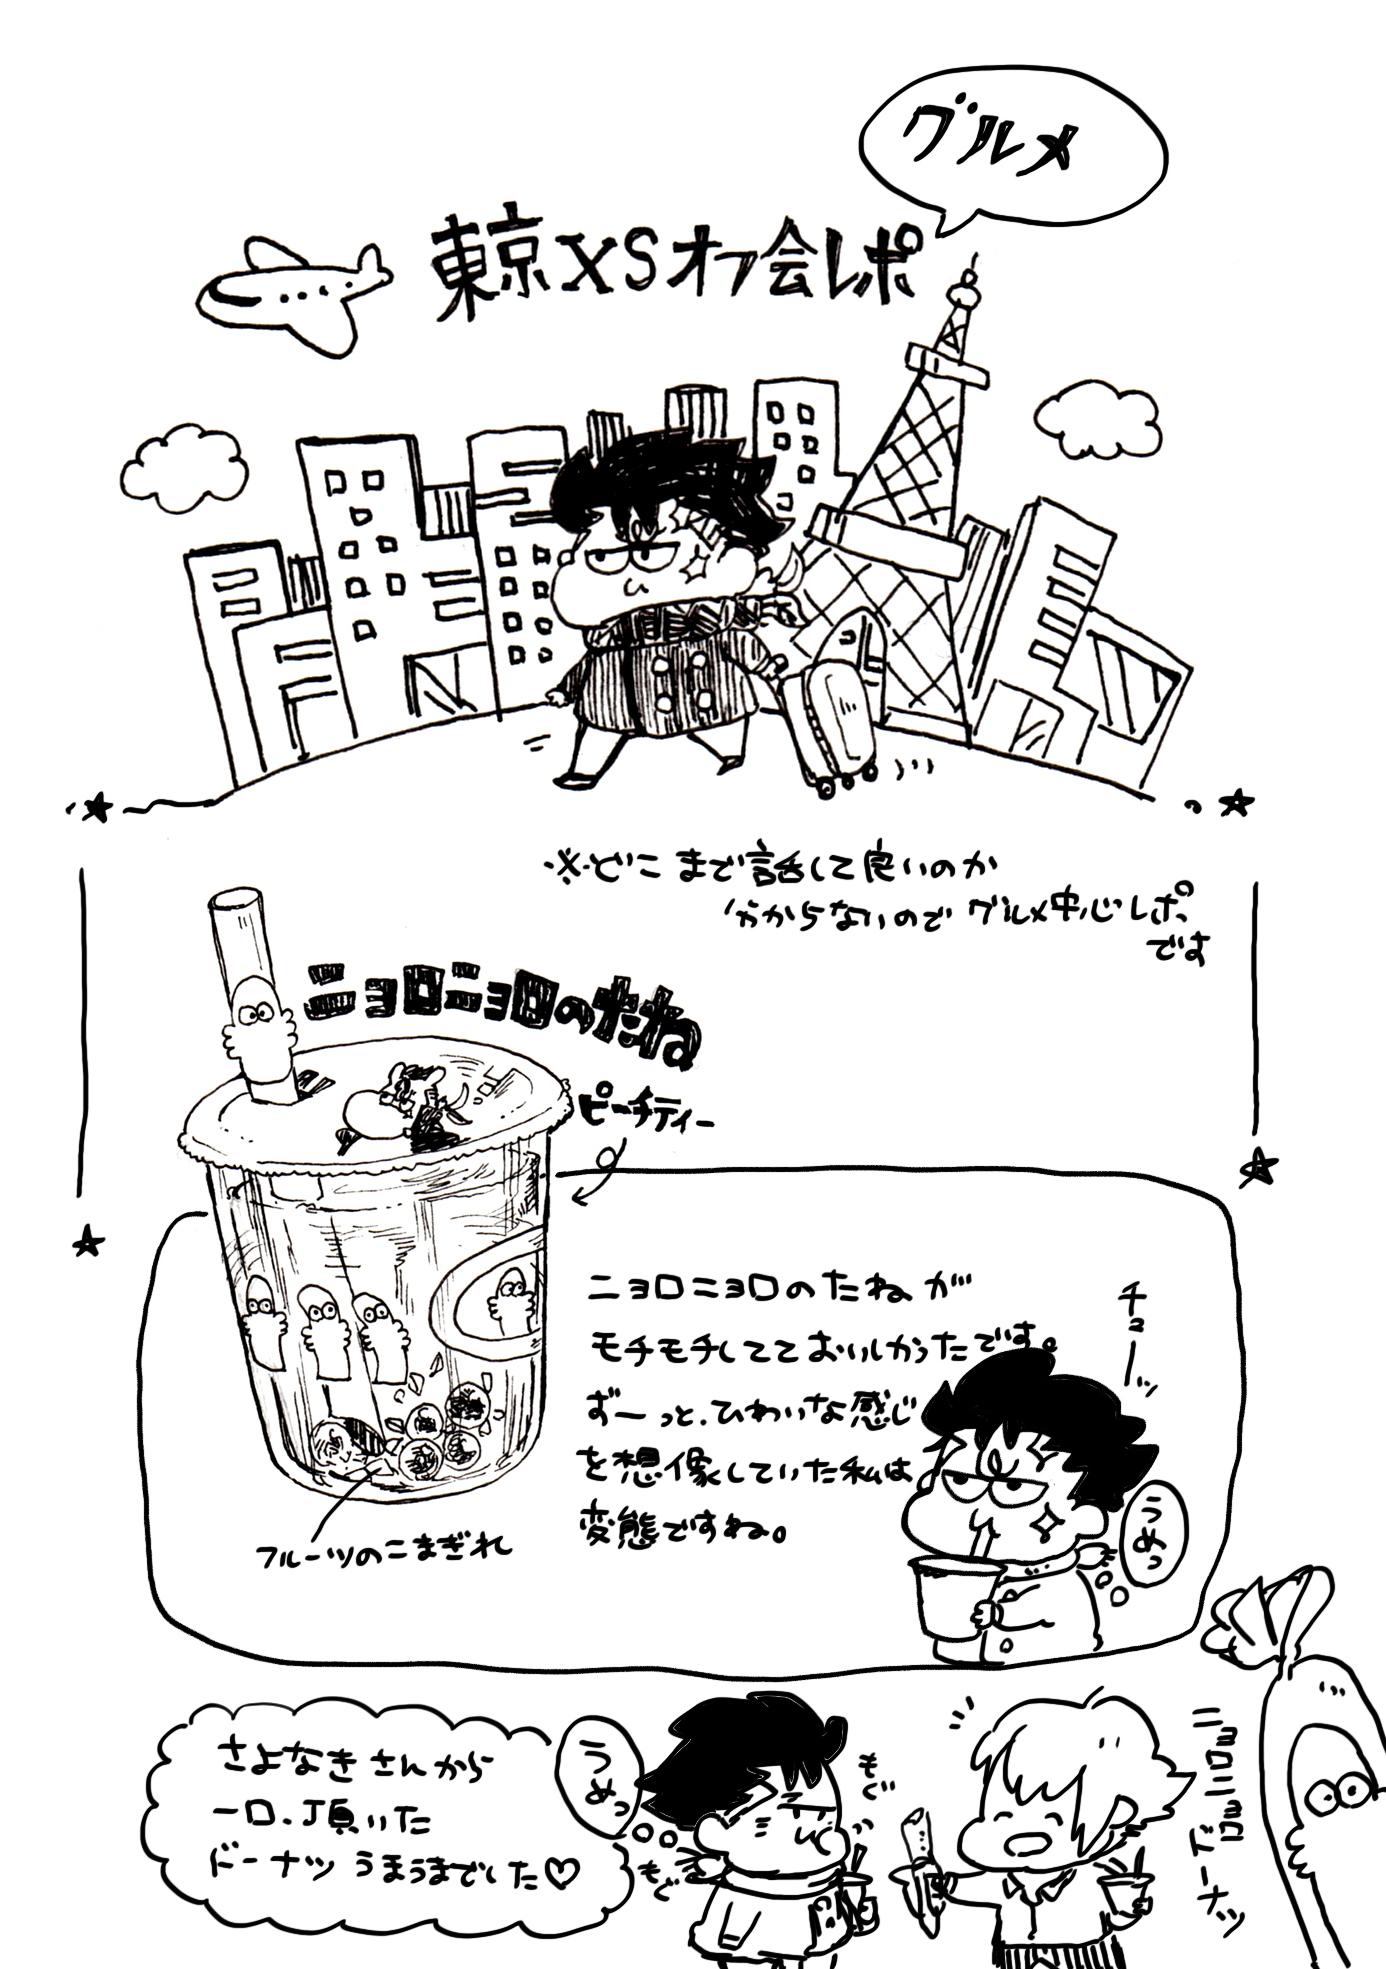 グルメ
東京XSオフ会レポ
※どこまで話して良いのか
分からないのでグルメ中心レポ
です
ニョロニョロのたね
ピーチティー
ニョロニョロのたねが
モチモチしてておいしかったです。
ずーっと、ひわいな感じ
を想像していた私は
変態ですね。
チューッ
うめっ
フルーツのこまぎれ
さよなきさんから
一口、頂いた
ドーナツうまうまでした♡
うめっ
もぐ
もぐ
ニョロニョロ
ドーナツ